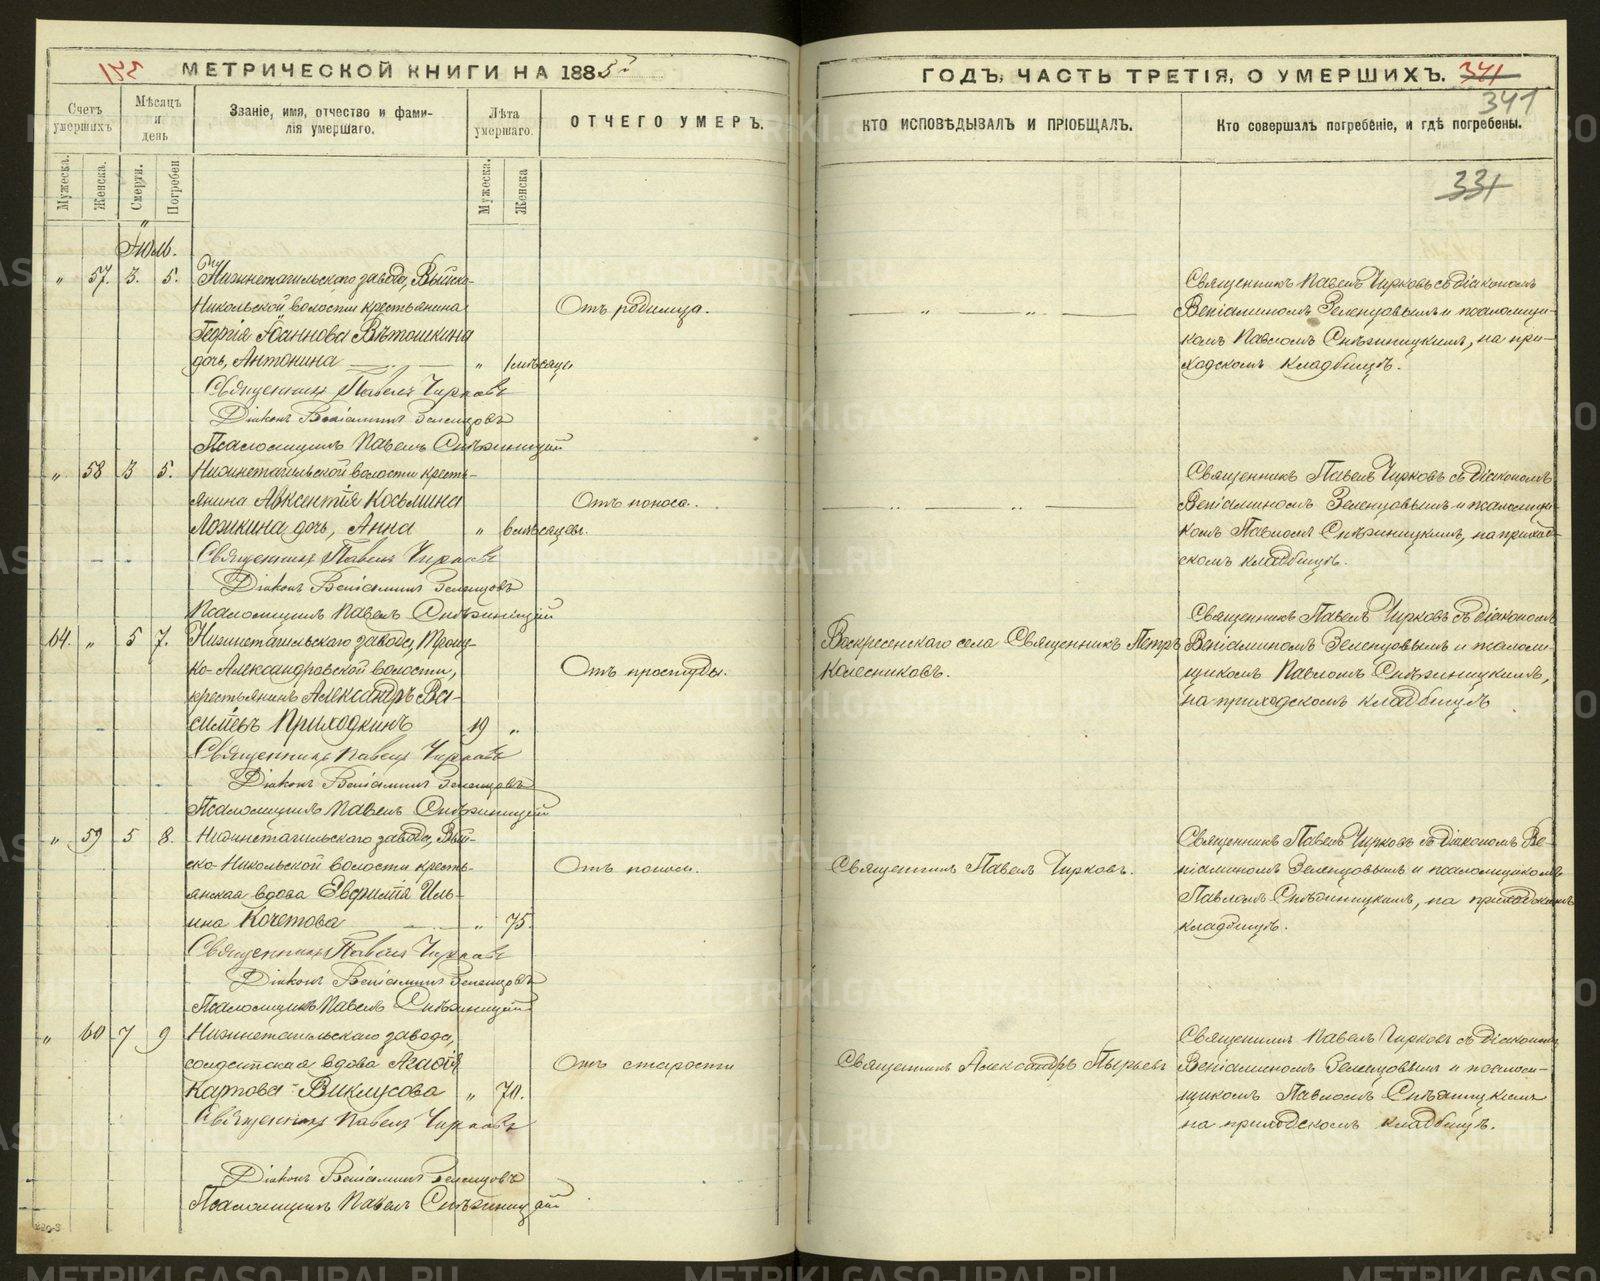 МЕТРИЧЕСКОЙ КНИГИ НА 1885й
Счетъ умершихъ
Мѣсяцъ и день
Званіе, имя, отчество и фами-
лія умершаго.
Лѣта умершаго.
ОТЧЕГО УМЕРЪ.
Мужеска.
Женска.
Смерти.
Погребен
Мужеска.
Женска
Іюль.
" 57. 3. 5. Нижнетагильскаго завода, Выйско-
Никольской волости крестьянина
Георгія Іоаннова Вѣтошкина
дочь, Антонина " 1 мѣсяцъ
Отъ родимца.
Священникъ Павелъ Чирковъ
Діаконъ Веніаминъ Зеленцовъ
Псаломщикъ Павелъ Снѣжницкій
" 58 3 5. Нижнетагильской волости кресть-
янина Авксентія Косьмина
Ложкина дочь, Анна " 6 мѣсяцевъ.
Отъ поноса.
Священникъ Павелъ Чирковъ
Діаконъ Веніаминъ Зеленцовъ
Псаломщикъ Павелъ Снѣжницкій
64. " 5 7. Нижнетагильскаго завода, Троиц-
ко-Александровской волости,
крестьянинъ Александръ Ва-
сильевъ Приходкинъ 19 "
Отъ простуды.
Священникъ Павелъ Чирковъ
Діаконъ Веніаминъ Зеленцовъ
Псаломщикъ Павелъ Снѣжницкій
" 59 5 8. Нижнетагильскаго завода, Вый-
ско-Никольской волости кресть-
янская вдова Евфимія Иль-
ина Кочетова " 75.
Отъ поноса.
Священникъ Павелъ Чирковъ
Діаконъ Веніаминъ Зеленцовъ
Псаломщикъ Павелъ Снѣжницкій
" 60 7 9 Нижнетагильскаго завода,
солдатская вдова Агафія
Карпова Викулова " 70.
Отъ старости
Священникъ Павелъ Чирковъ
Діаконъ Веніаминъ Зеленцовъ
Псаломщикъ Павелъ Снѣжницкій
ГОДЪ, ЧАСТЬ ТРЕТІЯ, О УМЕРШИХЪ. 341
341
КТО ИСПОВѢДЫВАЛЪ И ПРІОБЩАЛЪ.
Кто совершалъ погребеніе, и гдѣ погребены.
331
Священникъ Павелъ Чирковъ съ діакономъ
Веніаминомъ Зеленцовымъ и псаломщи-
комъ Павломъ Снѣжницкимъ, на при-
ходскомъ кладбищѣ.
Священникъ Павелъ Чирковъ съ діакономъ
Веніаминомъ Зеленцовымъ и псаломщи-
комъ Павломъ Снѣжницкимъ, на приход-
скомъ кладбищѣ.
Воскресенскаго села Священникъ Петръ
Колесниковъ.
Священникъ Павелъ Чирковъ съ діакономъ
Веніаминомъ Зеленцовымъ и псалом-
щикомъ Павломъ Снѣжницкимъ,
на приходскомъ кладбищѣ
Священникъ Павелъ Чирковъ.
Священникъ Павелъ Чирковъ съ діакономъ Ве-
ніаминомъ Зеленцовымъ и псаломщикомъ
Павломъ Снѣжницкимъ, на приходскомъ
кладбищѣ.
Священникъ Александръ Пырьевъ
Священникъ Павелъ Чирковъ съ діакономъ
Веніаминомъ Зеленцовымъ и псалом-
щикомъ Павломъ Снѣжницкимъ
на приходскомъ кладбищѣ.
METRIKI.GASO-URAL.RU